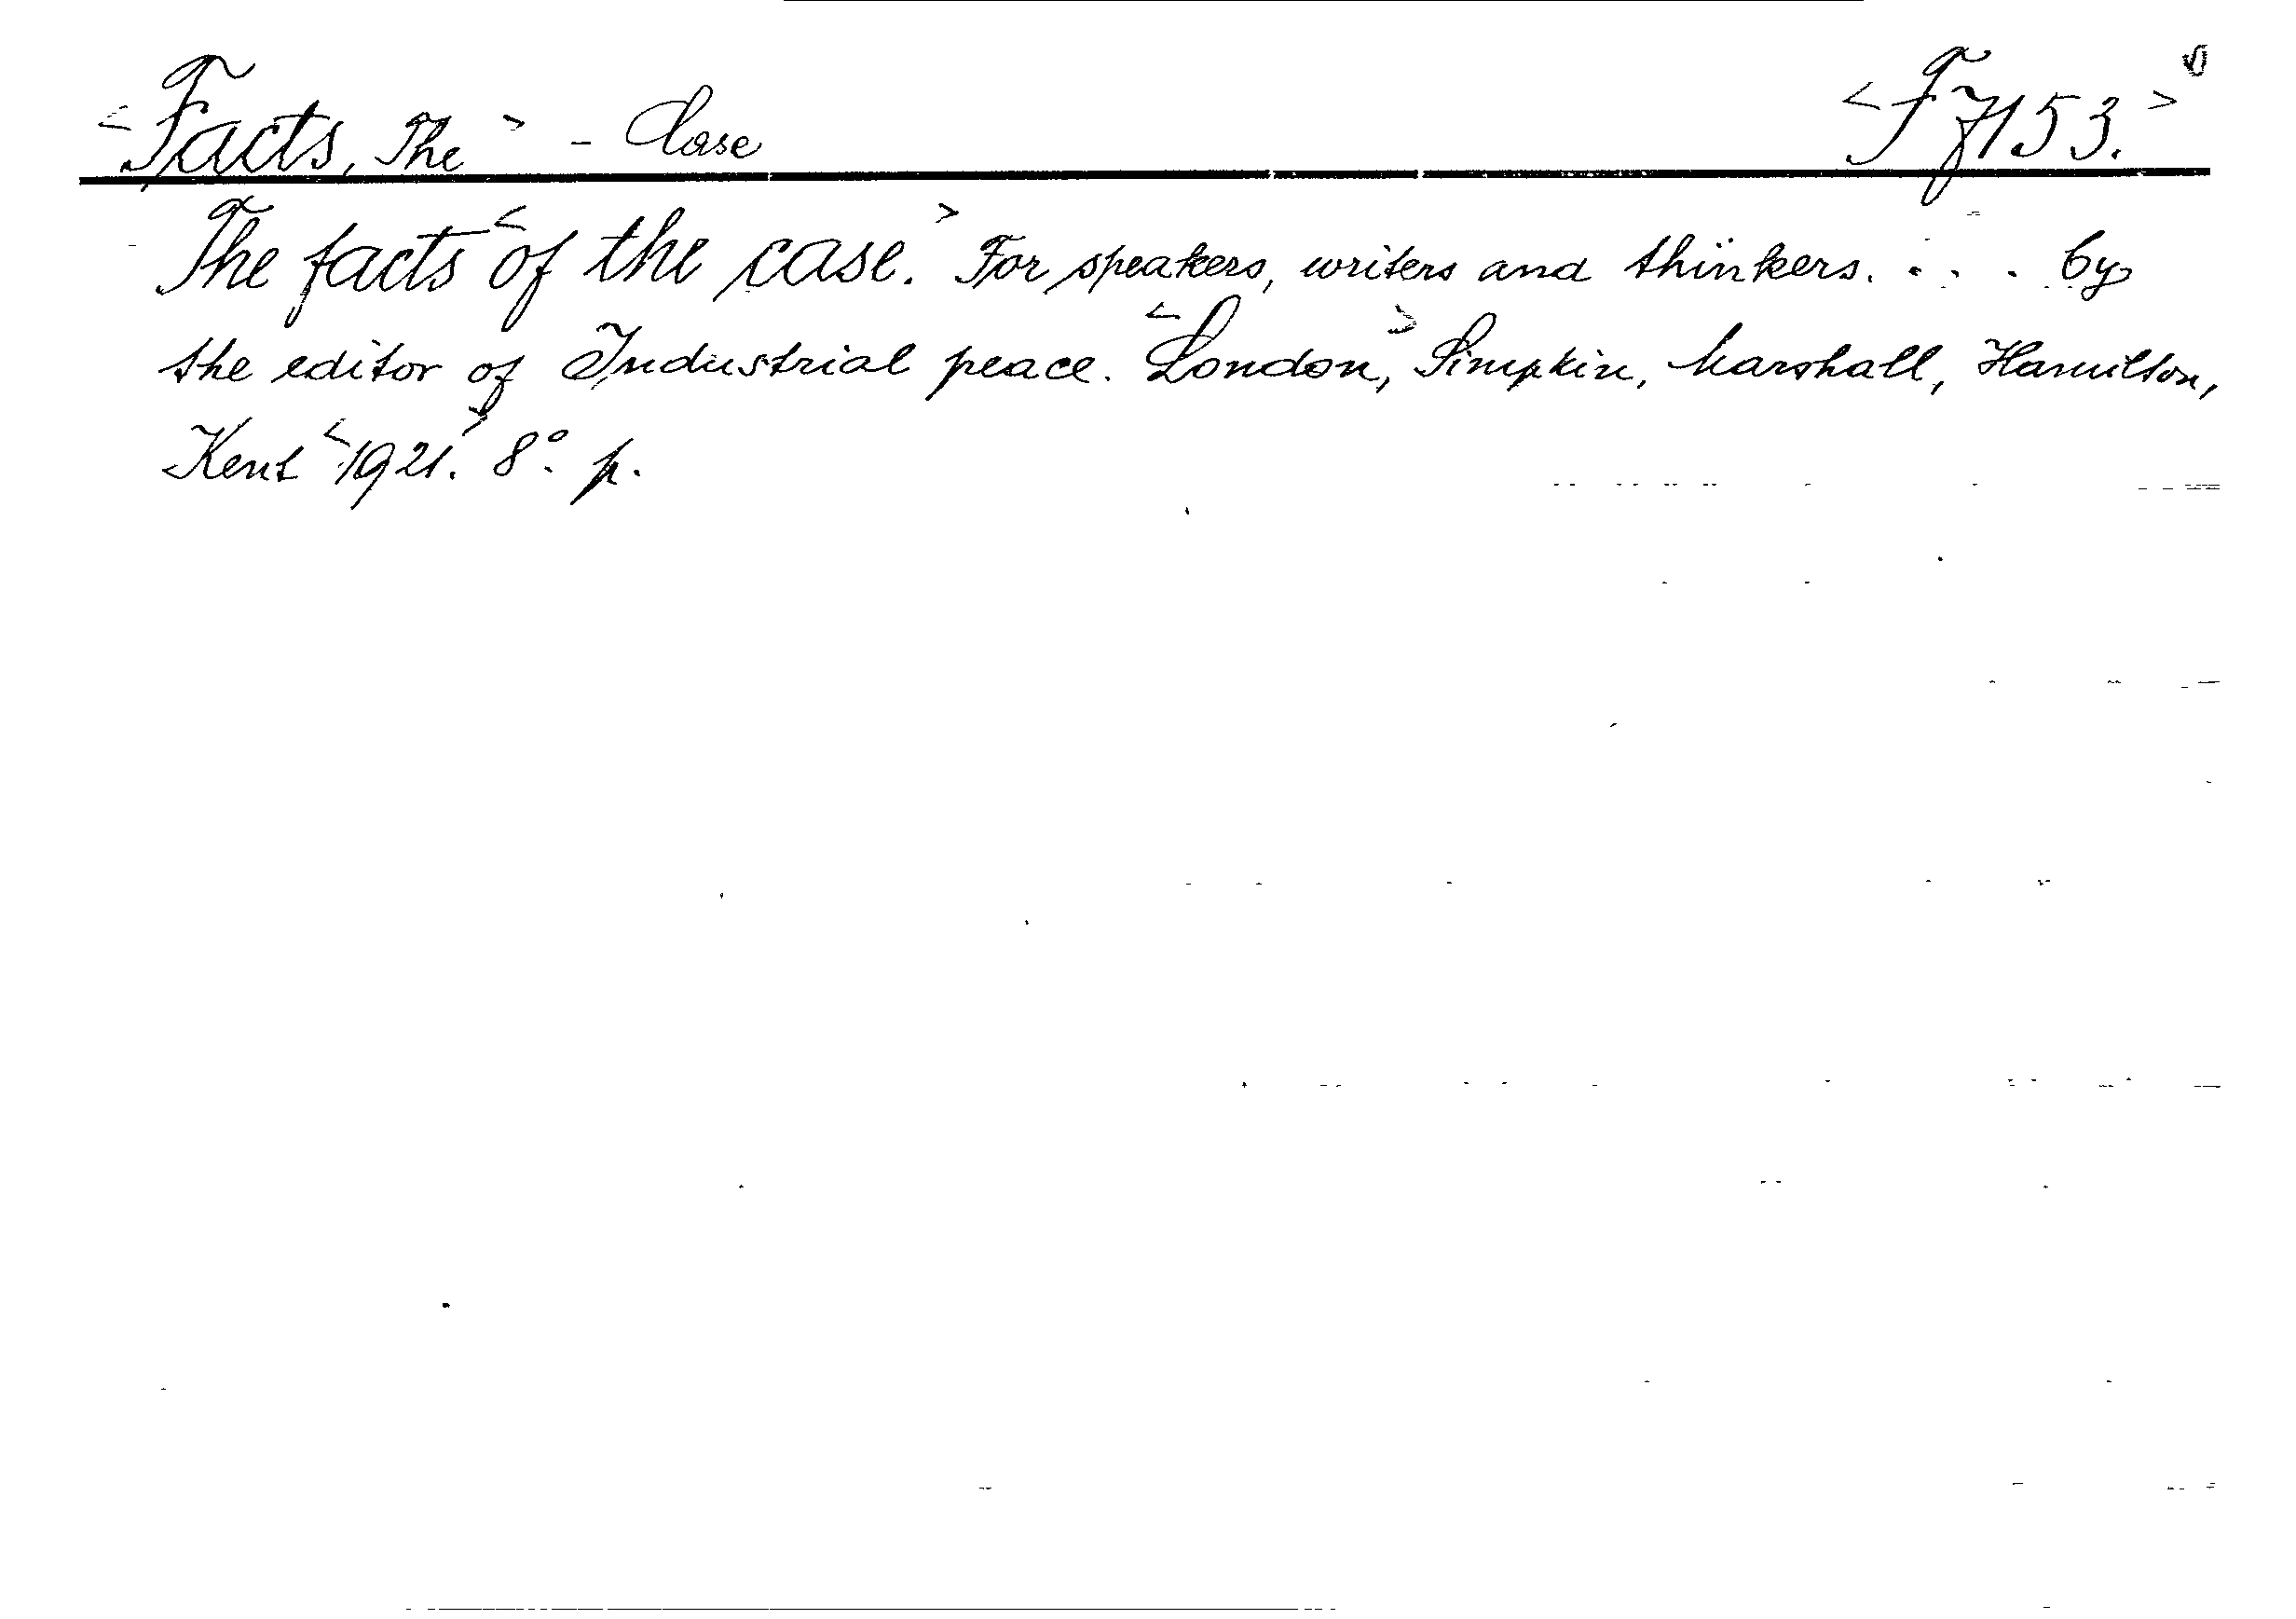 <Facts, The> - Case <F 7153.>
The facts <of the case.> For speakers, writers and thinkers. . . . by
the editor of Industrial peace. <London,> Simpkin, Marshall, Hamilton,
Kent <1921.> 8°. p.